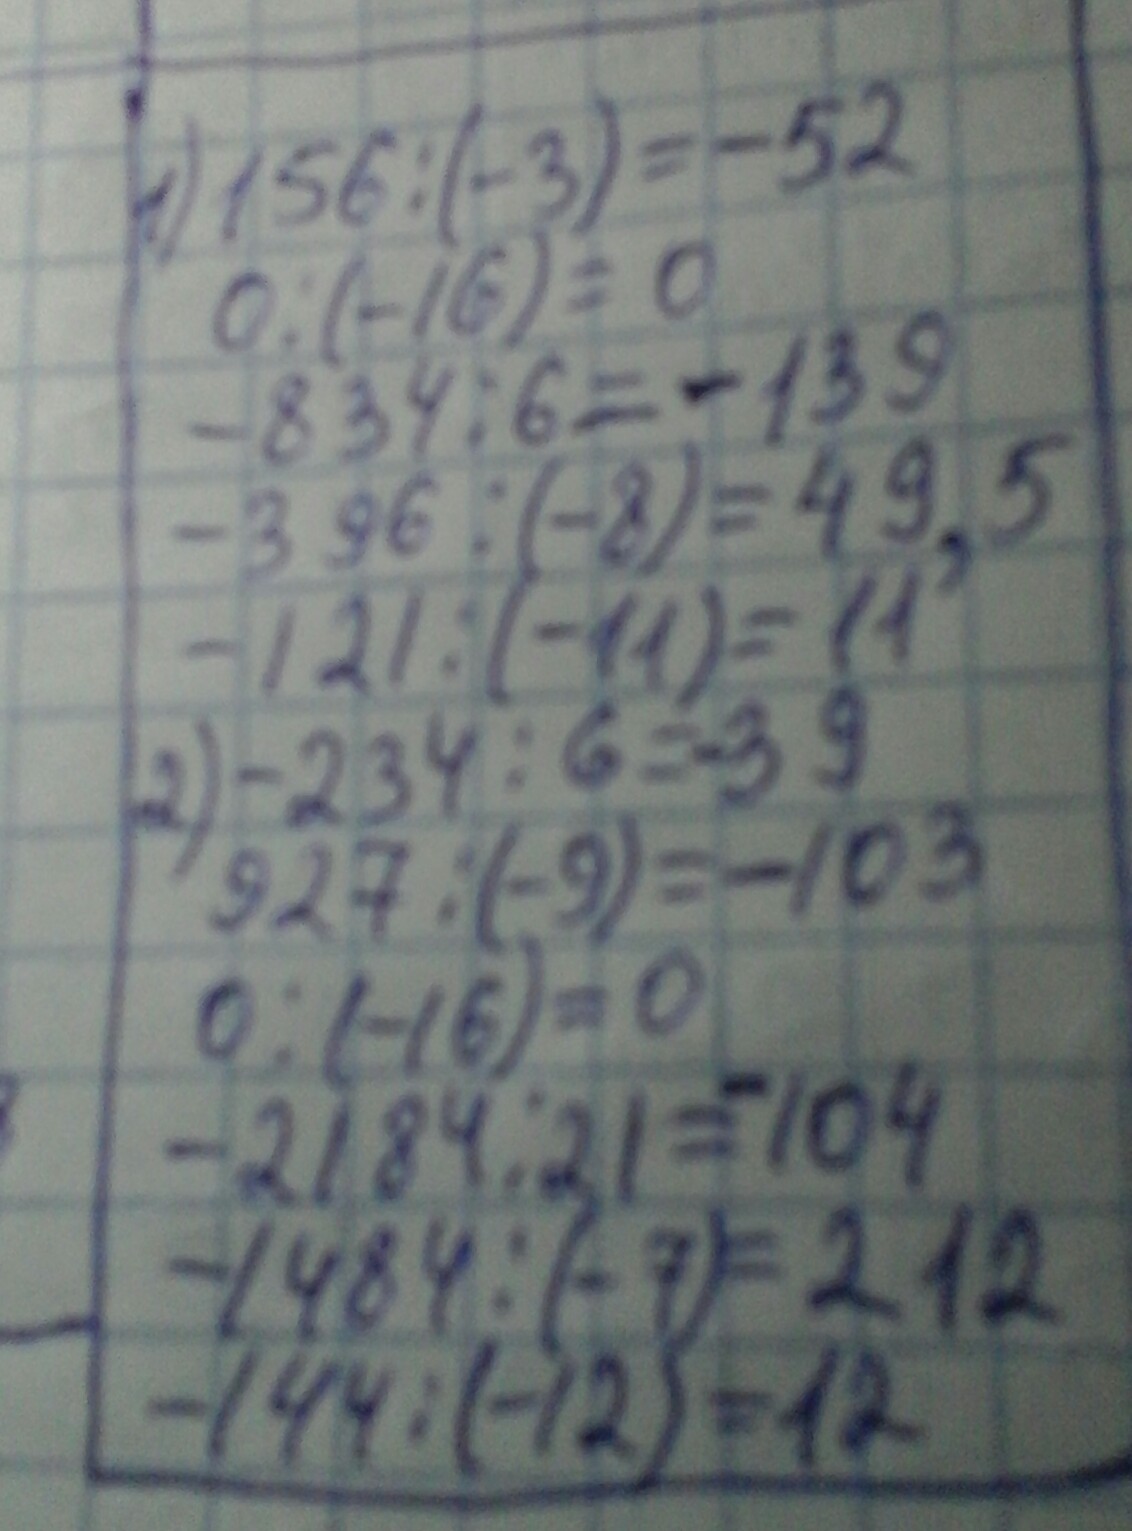 1) 156:(-3)=-52
0:(-16)=0
-834:6=-139
-396:(-8)=49,5
-121:(-11)=11
2) -234:6=-39
927:(-9)=-103
0:(-16)=0
-2184:21=-104
-1484:(-7)=212
-144:(-12)=12